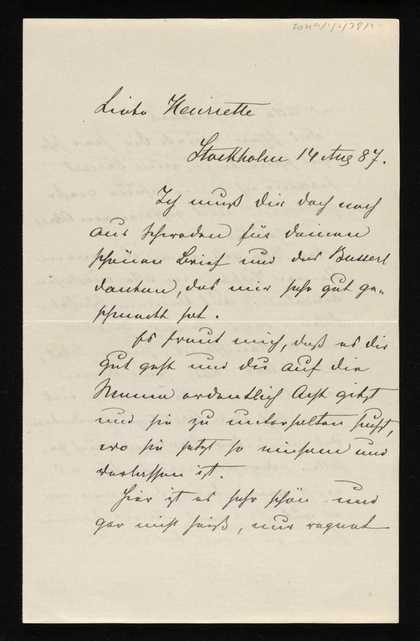 Liebe Henriette
Stockholm 14 Aug 87.
Ich muß Dir doch noch
aus Schweden für Deinen
schönen Brief und das Busserl
danken, das mir sehr gut ge-
schmeckt hat.
Es freut mich, daß es Dir
gut geht und Du auf die
Mama ordentlich Acht gibst
und sie zu unterhalten suchst,
wo sie jetzt so einsam und
verlassen ist.
Hier ist es sehr schön und
gar nicht heiß, nur regnet